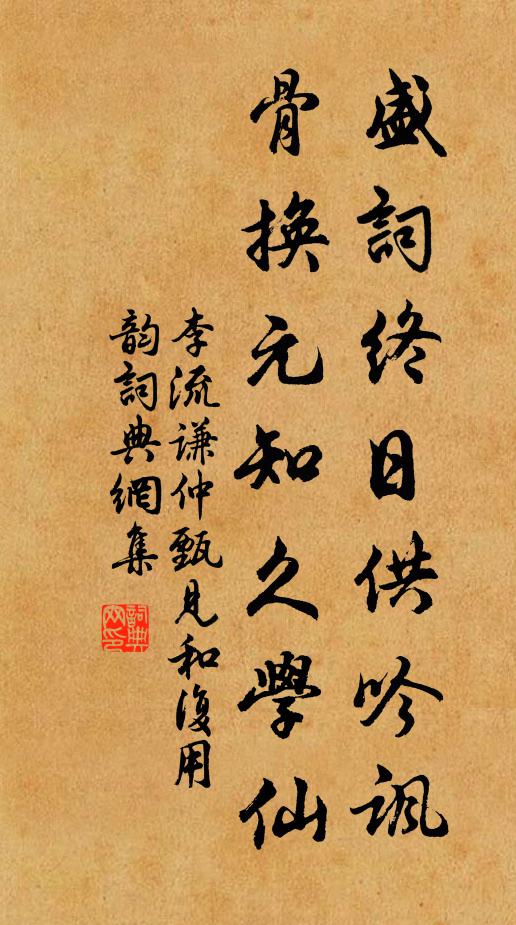 盛詞終日供吟諷
骨換元知久學仙
李流謙仲甄見和復用
韵詞典網集
詞典網印